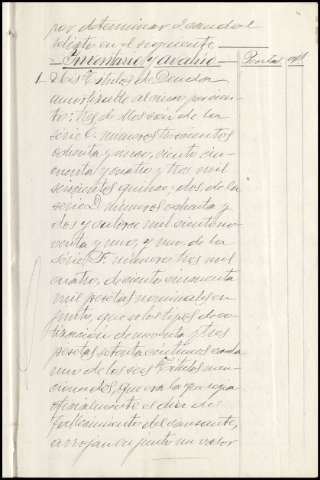 por determinar dando el
relato en el siguiente
Inventario y avalúo Pesetas cts
1. Seis Títulos de Deuda
amortizable al cinco por cien-
to: tres de ellos son de la
serie C. números trescientos
ochenta y uno, ciento cin-
cuenta y cuatro y tres mil
seiscientos quince; dos de la
serie D números ochenta y
dos y catorce mil ciento no-
venta y uno, y uno de la
serie F. número dos mil
cuatro, de ciento cincuenta
mil pesetas nominales en
junto, que a los tipos de co-
tización de noventa y tres
pesetas setenta centimos cada
uno de los seis Títulos men-
cionados, que era la que regia
oficialmente el dia del
fallecimiento del causante,
arrojan en junto un valor